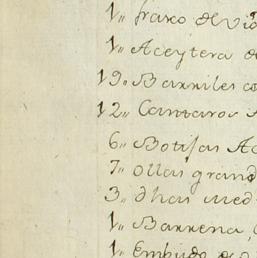 1,, frasco de Vid
1,, Aceytera d
19,, Barriles co
12,, Cantaros
6,, Botijas Ac
7,, Ollas grand
3,, dhas med
1,, Barrena,
1,, Embudo de